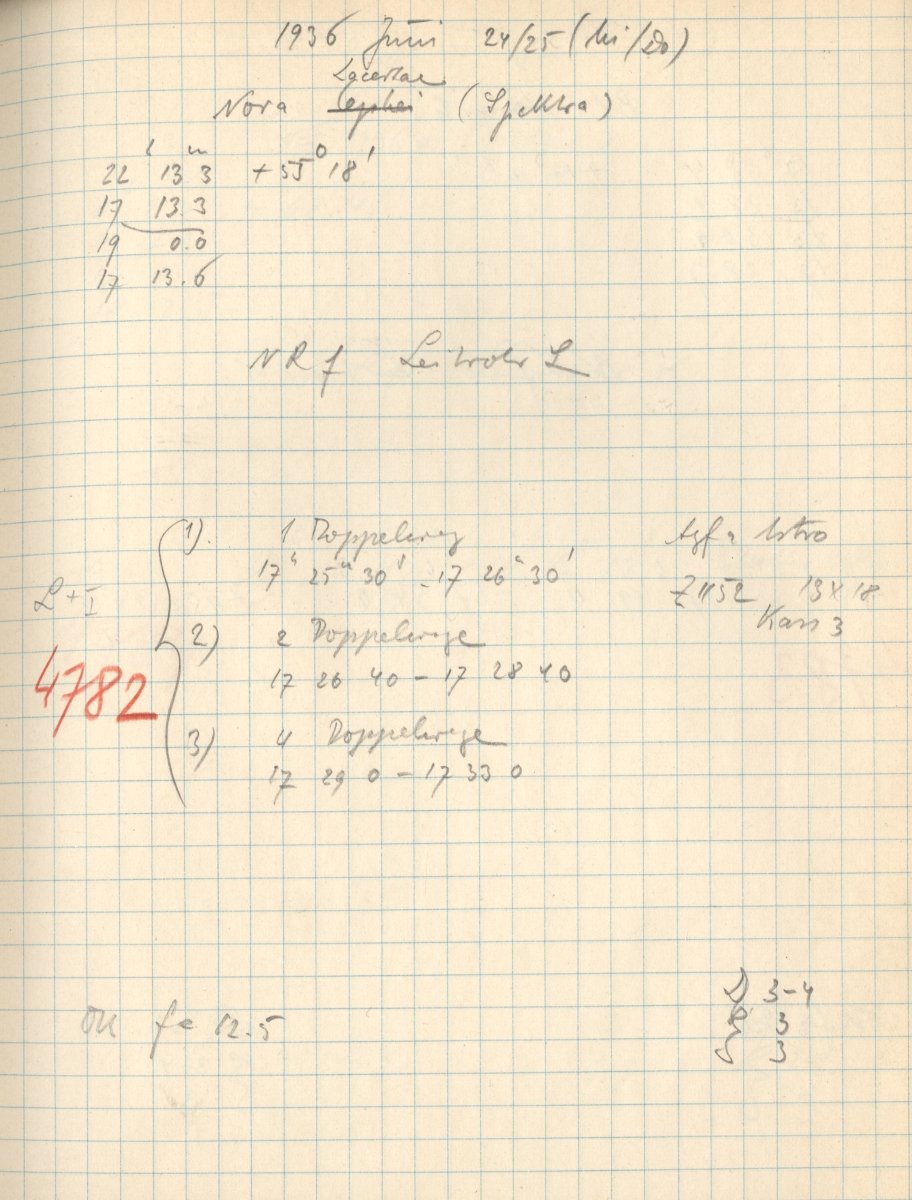 1936 Juni 24/25 (Mi/Do)
Lacertae
Nova Cephei (Spektra)
22 h 13 m 3 + 55° 18'
17 13.3
19 0.0
17 13.6
NR f Leitrohr L
1). 1 Doppelweg Agfa Astro
17 h 25 m 30 s - 17 26 m 30 s
Z 1152 13 x 18
L + I
Kass 3
2) 2 Doppelwege
17 26 40 - 17 28 40
4782
3) 4 Doppelwege
17 29 0 - 17 33 0
D 3-4
f = 12.5
3
3